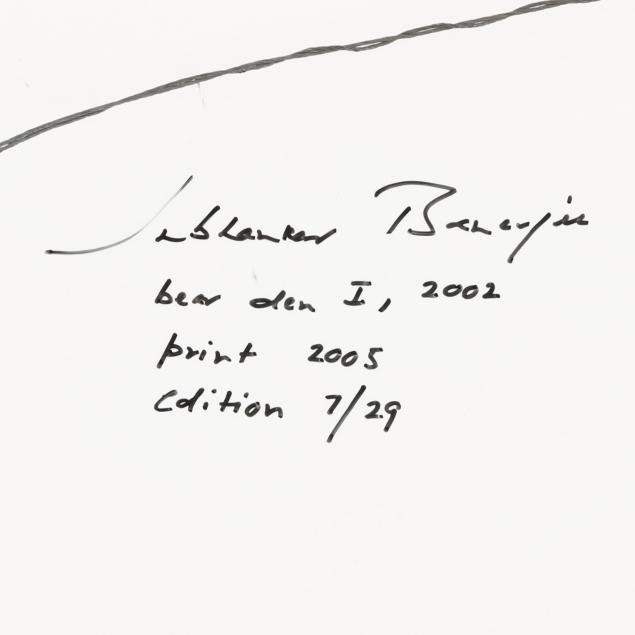 Subhankar Banerjee
bear den I, 2002
print 2005
Edition 7/29